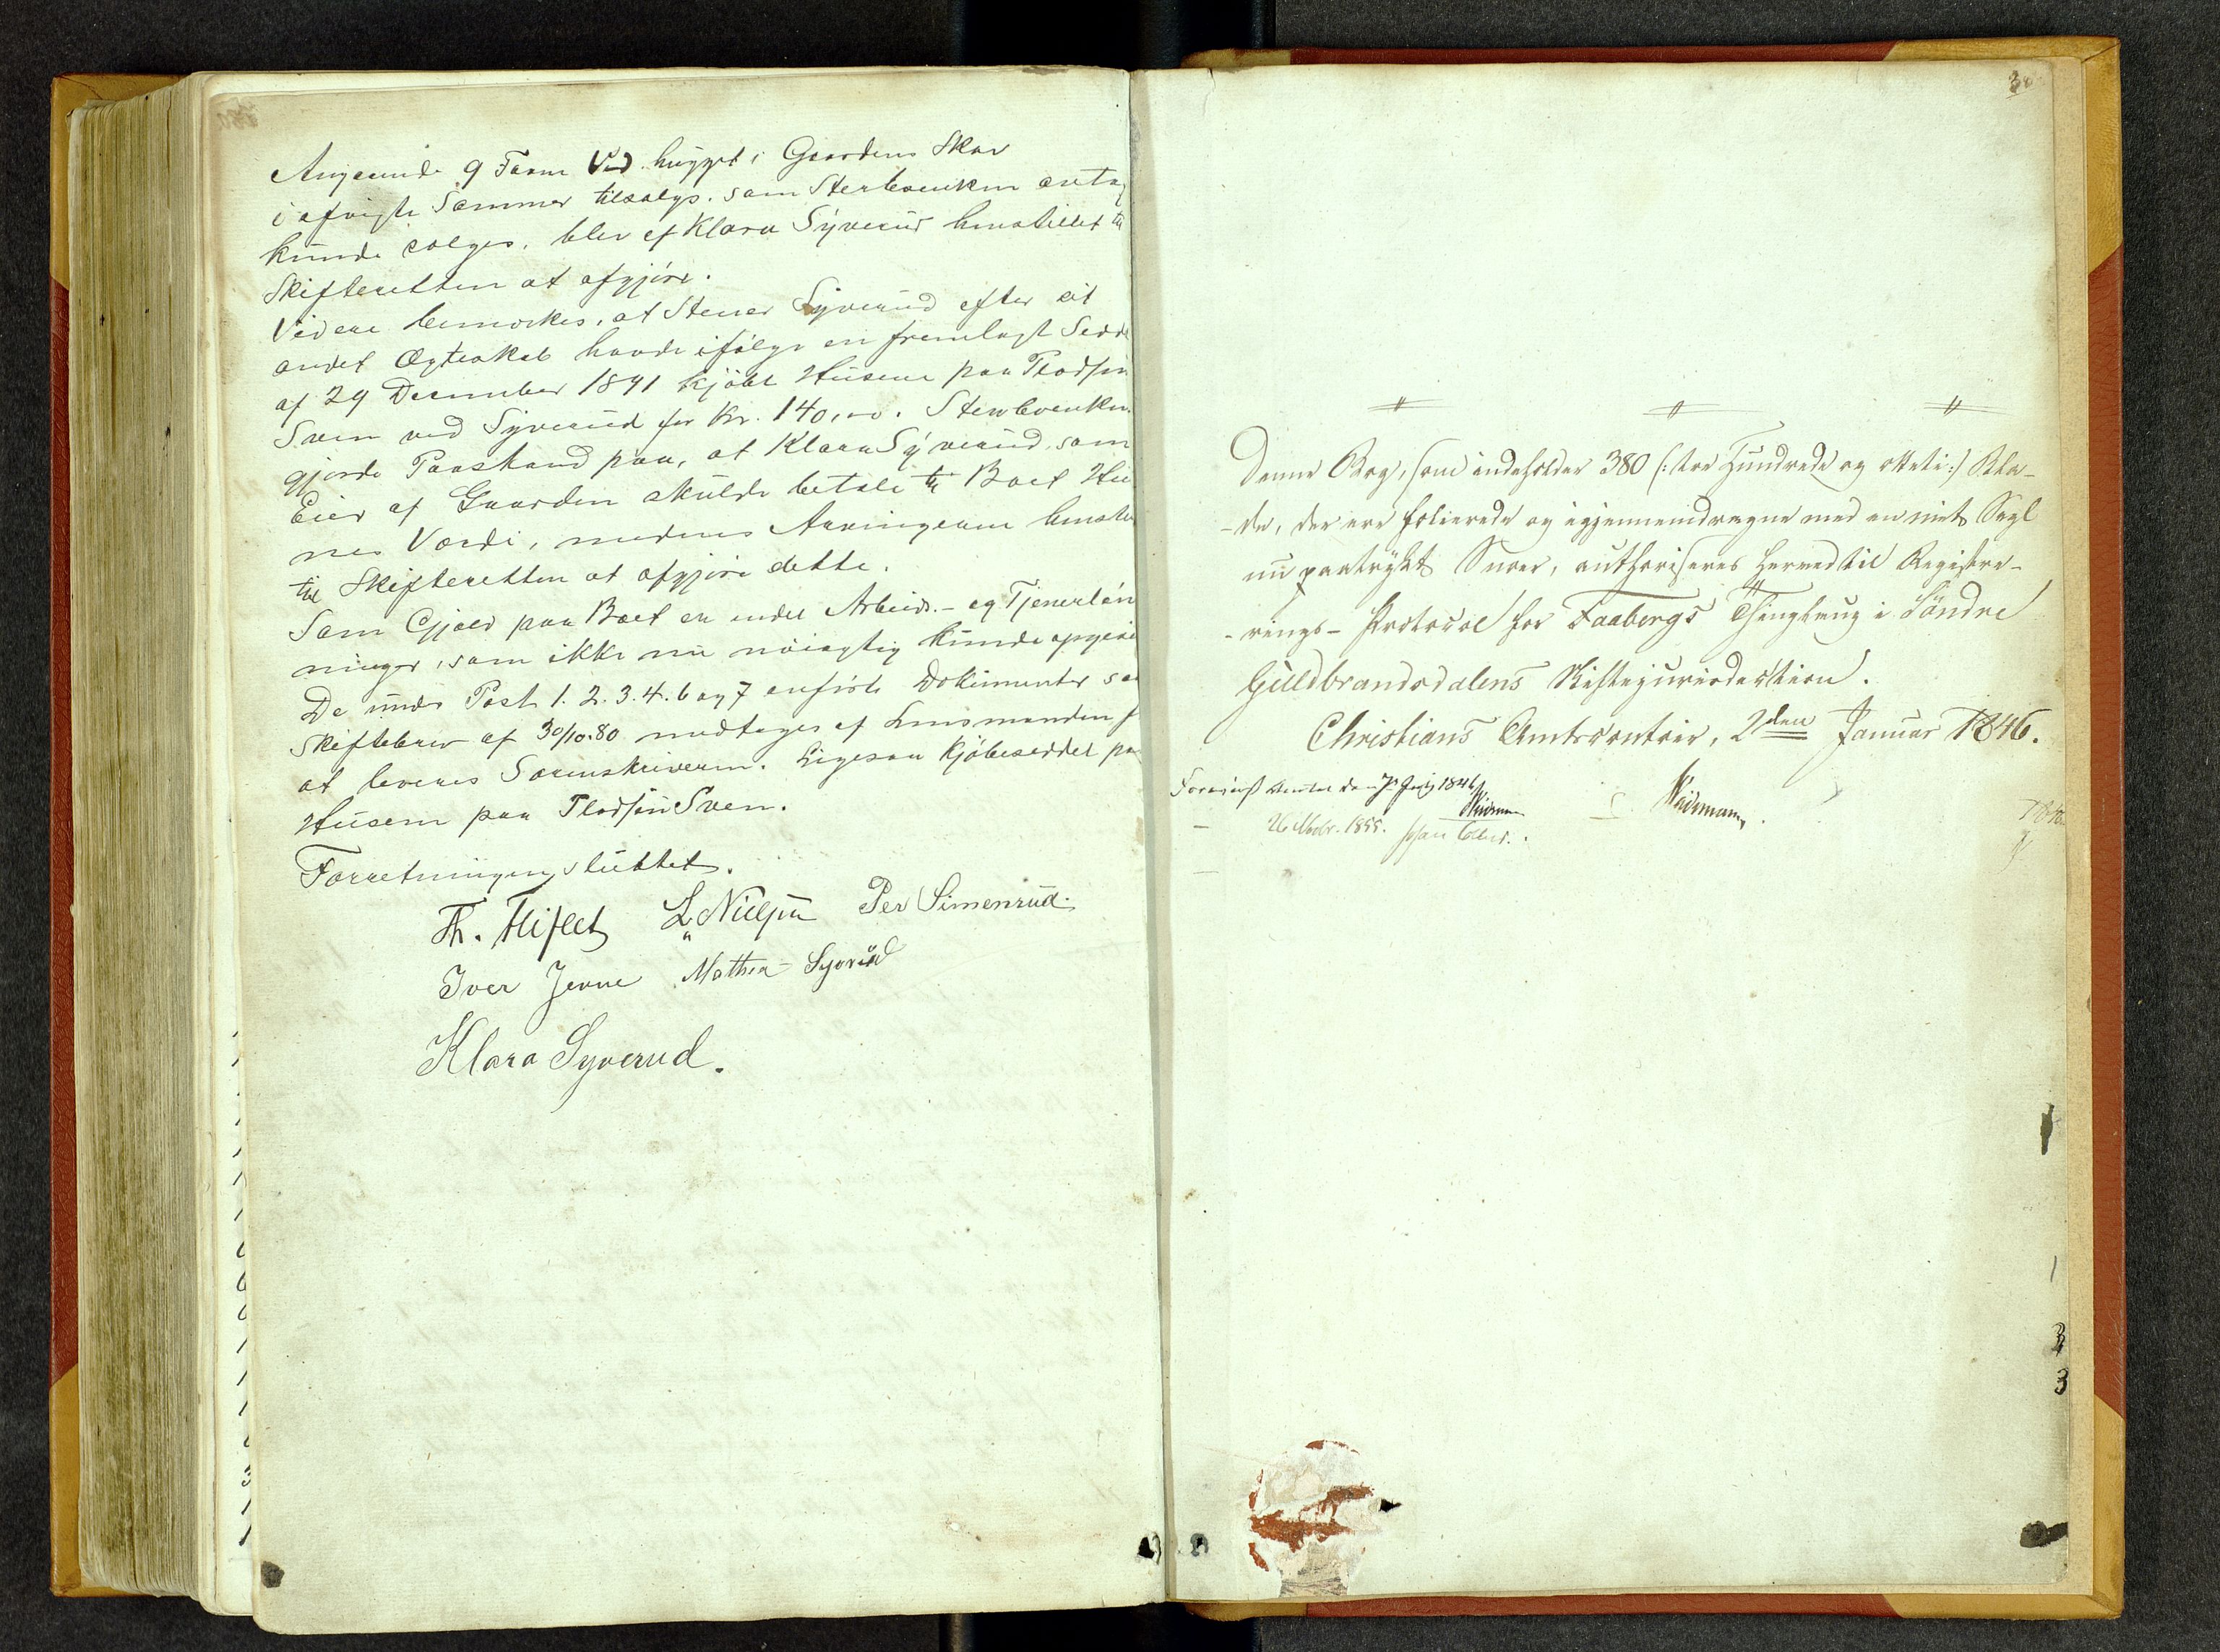 Angaaende 9 Favne Ved hugget i Gaardens Skov
i afvigte Sommer tilsalgs, som Sterbeenken
kunde sælges, blev af Klara Syverud henstillet til
Skifteretten at afgjøre.
Videre bemærkes, at Stener Syverud efter sit
andet Ægteskab havde ifølge en fremlagt
af 29 December 1891 kjøbt Husene paa
Sveen ved Syverud for Kr. 140,00. Sterbeenken
gjorde Paastand paa, at Klara Syverud som
Eier af Gaarden skulde betale til Boet
nes Værdi, medens Arvingerne
til Skifteretten at afgjøre dette.
Som Gjæld paa Boet er endel Arbeids- og Tjenerløn
ninger, som ikke nu nøiagtig kunde
De under Post 1. 2. 3. 4. 6 og 7 anførte Dokumenter
Skiftebrev af 30/10.80 modtages af Lensmanden
at leveres Sorenskriveren. Ligesaa Kjøbeseddel
Husene paa Sveen.
Forretningen sluttet.
Th. Fliflet L. Nielsen Per Simenrud.
Iver Jevne Mathea Syverud
Klara Syverud.
Denne Bog, som indeholder 380 (: tre Hundrede og otteti :) Bla-
-de, der ere folierede og igjennemdragne med en mit Segl
nu paatrykt Snoer, authoriseres herved til Registre-
-rings-Protocol for Faabergs Thinglaug i Søndre
Guldbrandsdalens Skiftejurisdiction.
Christians Amtscontoir, 2den Januar 1846.
Foreviist den 7 1846
Weidemann
Weidemann
26 1855. Collett.